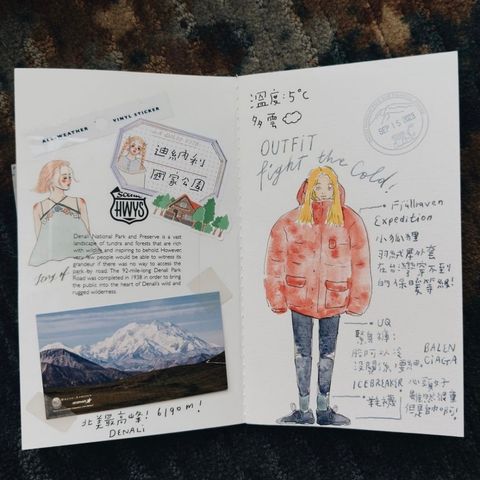 ALL-WEATHER
VINYL STICKER
迪納利
國家公園
Scenic
HWYS
story of
Denali National Park and Preserve is a vast
landscape of tundra and forests that are rich
with wildlife and inspiring to behold. However,
very few people would be able to witness its
grandeur if there was no way to access the
park by road. The 92-mile-long Denali Park
Road was completed in 1938 in order to bring
the public into the heart of Denali's wild and
rugged wilderness.
北美最高峰! 6190m!
DENALI
溫度:5°C
多雲
SEP 15 2023
OUTFIT
fight the cold!
Fjallraven
Expedition
小狐狸
羽絨厚外套
在台灣穿不到
的保暖等級!
UQ
緊身褲:
BALEN
CIAGA
ICEBREAKER
鞋襪